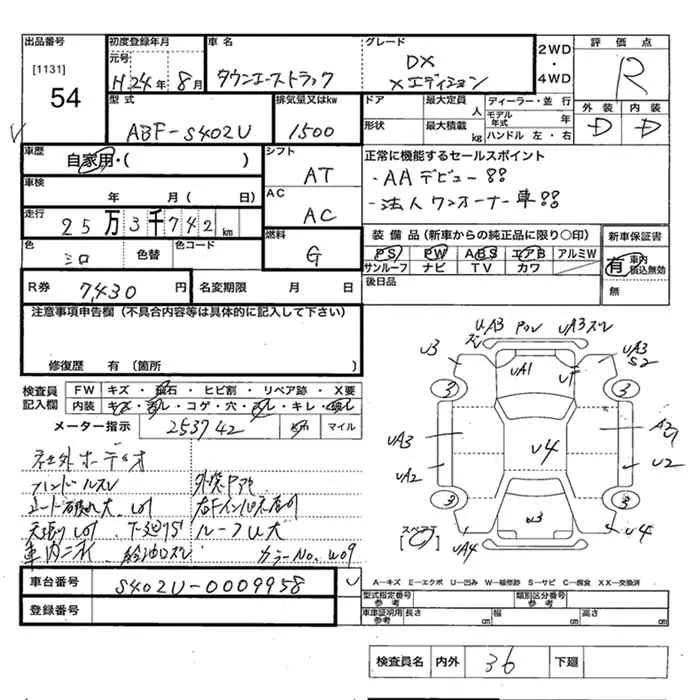 出品番号
[1131]
54
初度登録年月
元号
H24年 8月
車名
タウンエーストラック
グレード
DX
Xエディション
2WD
・
4WD
評価点
R
外装 内装
D D
型式
ABF-S402U
排気量又はkw
1500
ドア
形状
最大定員
人
最大積載
kg
ディーラー・並行
モデル年式 年
ハンドル 左・右
車歴
自家用・( )
車検
年 月( 日)
走行
25万3千742 km
色
シロ
色替
色コード
シフト
AT
AC
AC
燃料
G
R券
7,430 円
名変期限 月 日
正常に機能するセールスポイント
・AAデビュー!!
・法人ワンオーナー車!!
装備品(新車からの純正品に限り○印)
PS PW ABS エアB アルミW
サンルーフ ナビ TV カワ
後日品
新車保証書
有 車内積込無効
無
注意事項申告欄(不具合内容等は具体的に記入して下さい)
修復歴 有(箇所 )
検査員記入欄
FW キズ・飛石・ヒビ割・リペア跡・X要
内装 キズ・汚レ・コゲ・穴・スレ・キレ・
メーター指示 253742 km マイル
社外オーディオ
ハンドルスレ
シート破れ大
天張り
ルーフU大
車内
給油口ズレ
カラーNo. W09
UA3 ズレ POV UA3ズレ
U3
UA1
U
UA3
S2
3
3
UA3
UA2
U4
A2
U2
3
3
U3
スペアT
UA4
U4
車台番号 S402U-0009958
登録番号
A—キズ E—エクボ U—凹み W—補修跡 S—サビ C—腐食 XX—交換済
型式指定番号 参考
類別区分番号 参考
車庫証明用 参考
長さ cm 幅 cm 高さ cm
検査員名 内外 36 下廻